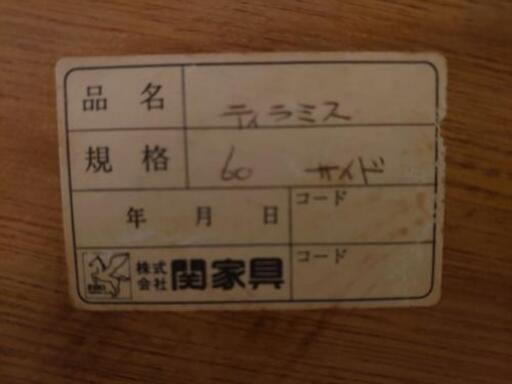 品名 ティラミス
規格 60 サイド
年 月 日 コード
株式会社 関家具 コード